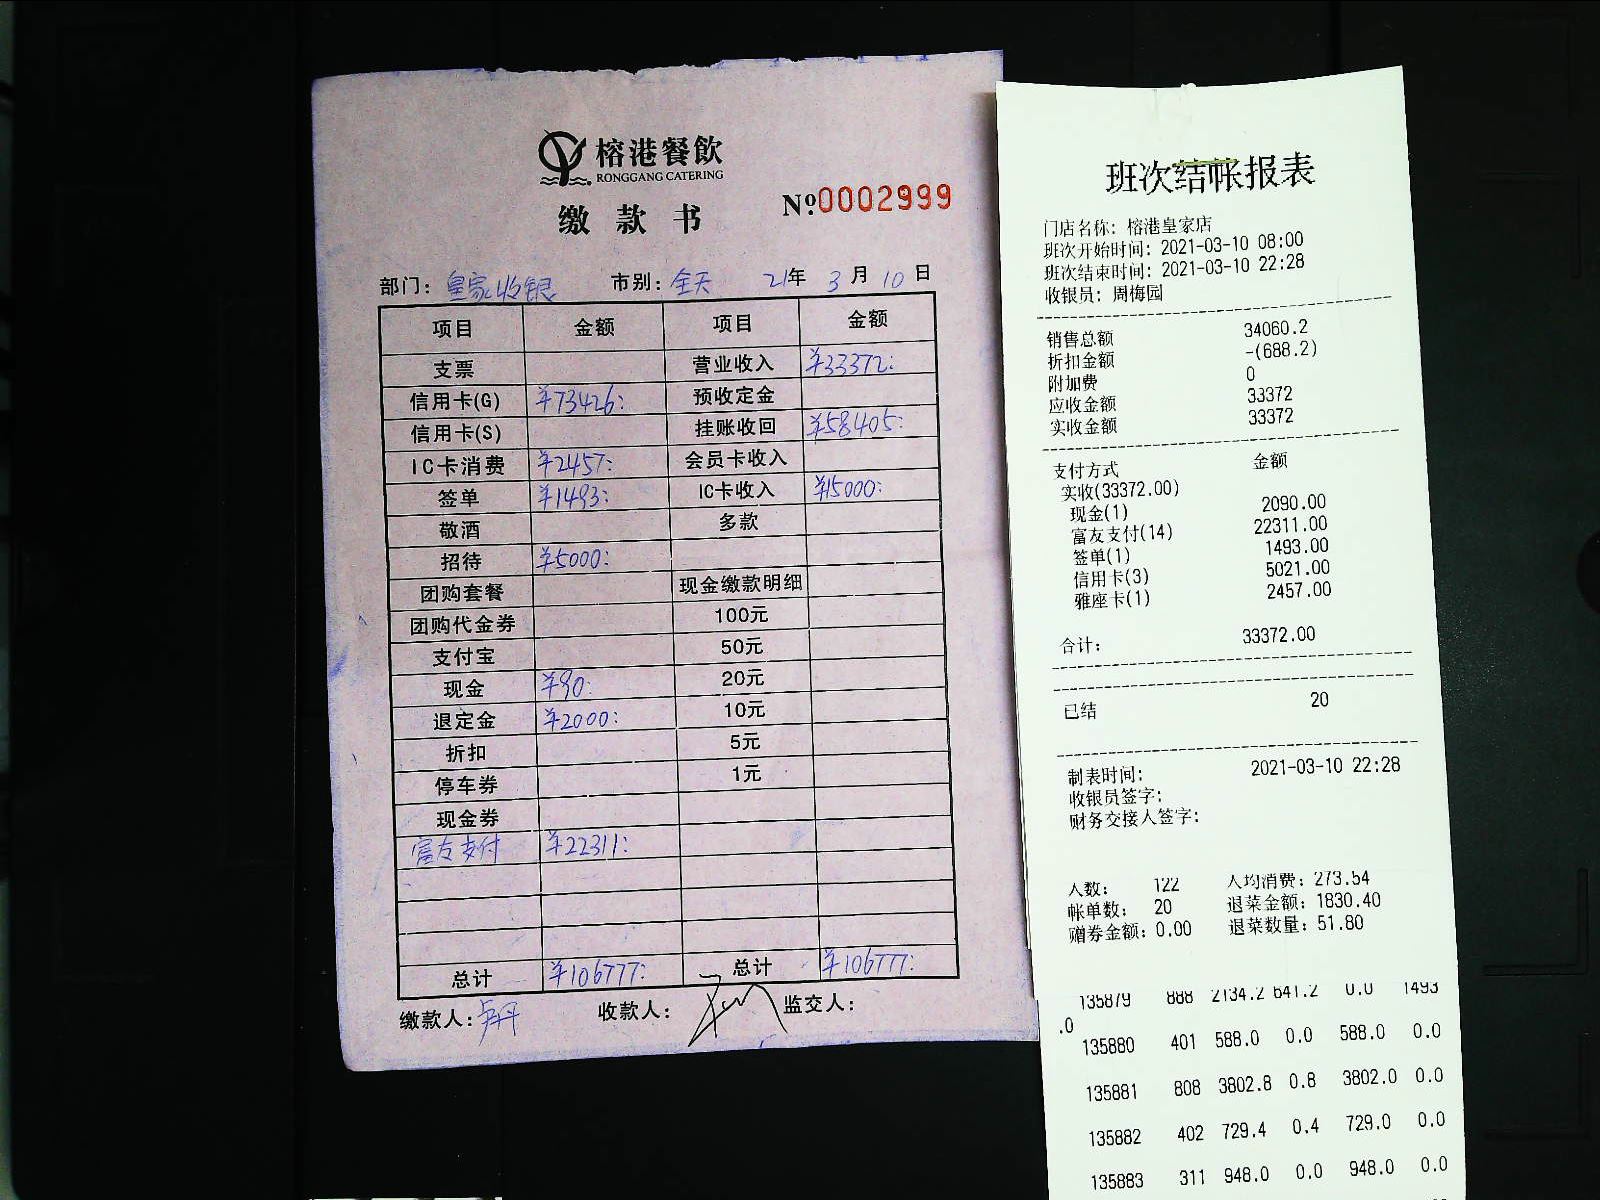 榕港餐飲
RONGGANG CATERING
缴款书
№0002999
部门：皇家收银 市别：全天 21年 3月 10日
项目 金额 项目 金额
支票 营业收入 ¥33372:
信用卡(G) ¥73426: 预收定金
信用卡(S) 挂账收回 ¥58405:
IC卡消费 ¥2457: 会员卡收入
签单 ¥1493: IC卡收入 ¥15000:
敬酒 多款
招待 ¥5000:
团购套餐 现金缴款明细
团购代金券 100元
支付宝 50元
现金 ¥90: 20元
退定金 ¥2000: 10元
折扣 5元
停车券 1元
现金券
富友支付 ¥22311:
总计 ¥106777: 总计 ¥106777:
缴款人：卢丹 收款人： 监交人：
班次结帐报表
门店名称：榕港皇家店
班次开始时间：2021-03-10 08:00
班次结束时间：2021-03-10 22:28
收银员：周梅园
销售总额 34060.2
折扣金额 -(688.2)
附加费 0
应收金额 33372
实收金额 33372
支付方式 金额
实收(33372.00)
现金(1) 2090.00
富友支付(14) 22311.00
签单(1) 1493.00
信用卡(3) 5021.00
雅座卡(1) 2457.00
合计： 33372.00
已结 20
制表时间： 2021-03-10 22:28
收银员签字：
财务交接人签字：
人数： 122 人均消费：273.54
帐单数： 20 退菜金额：1830.40
赠券金额：0.00 退菜数量：51.80
135879 888 2134.2 641.2 0.0 1493
.0
135880 401 588.0 0.0 588.0 0.0
135881 808 3802.8 0.8 3802.0 0.0
135882 402 729.4 0.4 729.0 0.0
135883 311 948.0 0.0 948.0 0.0